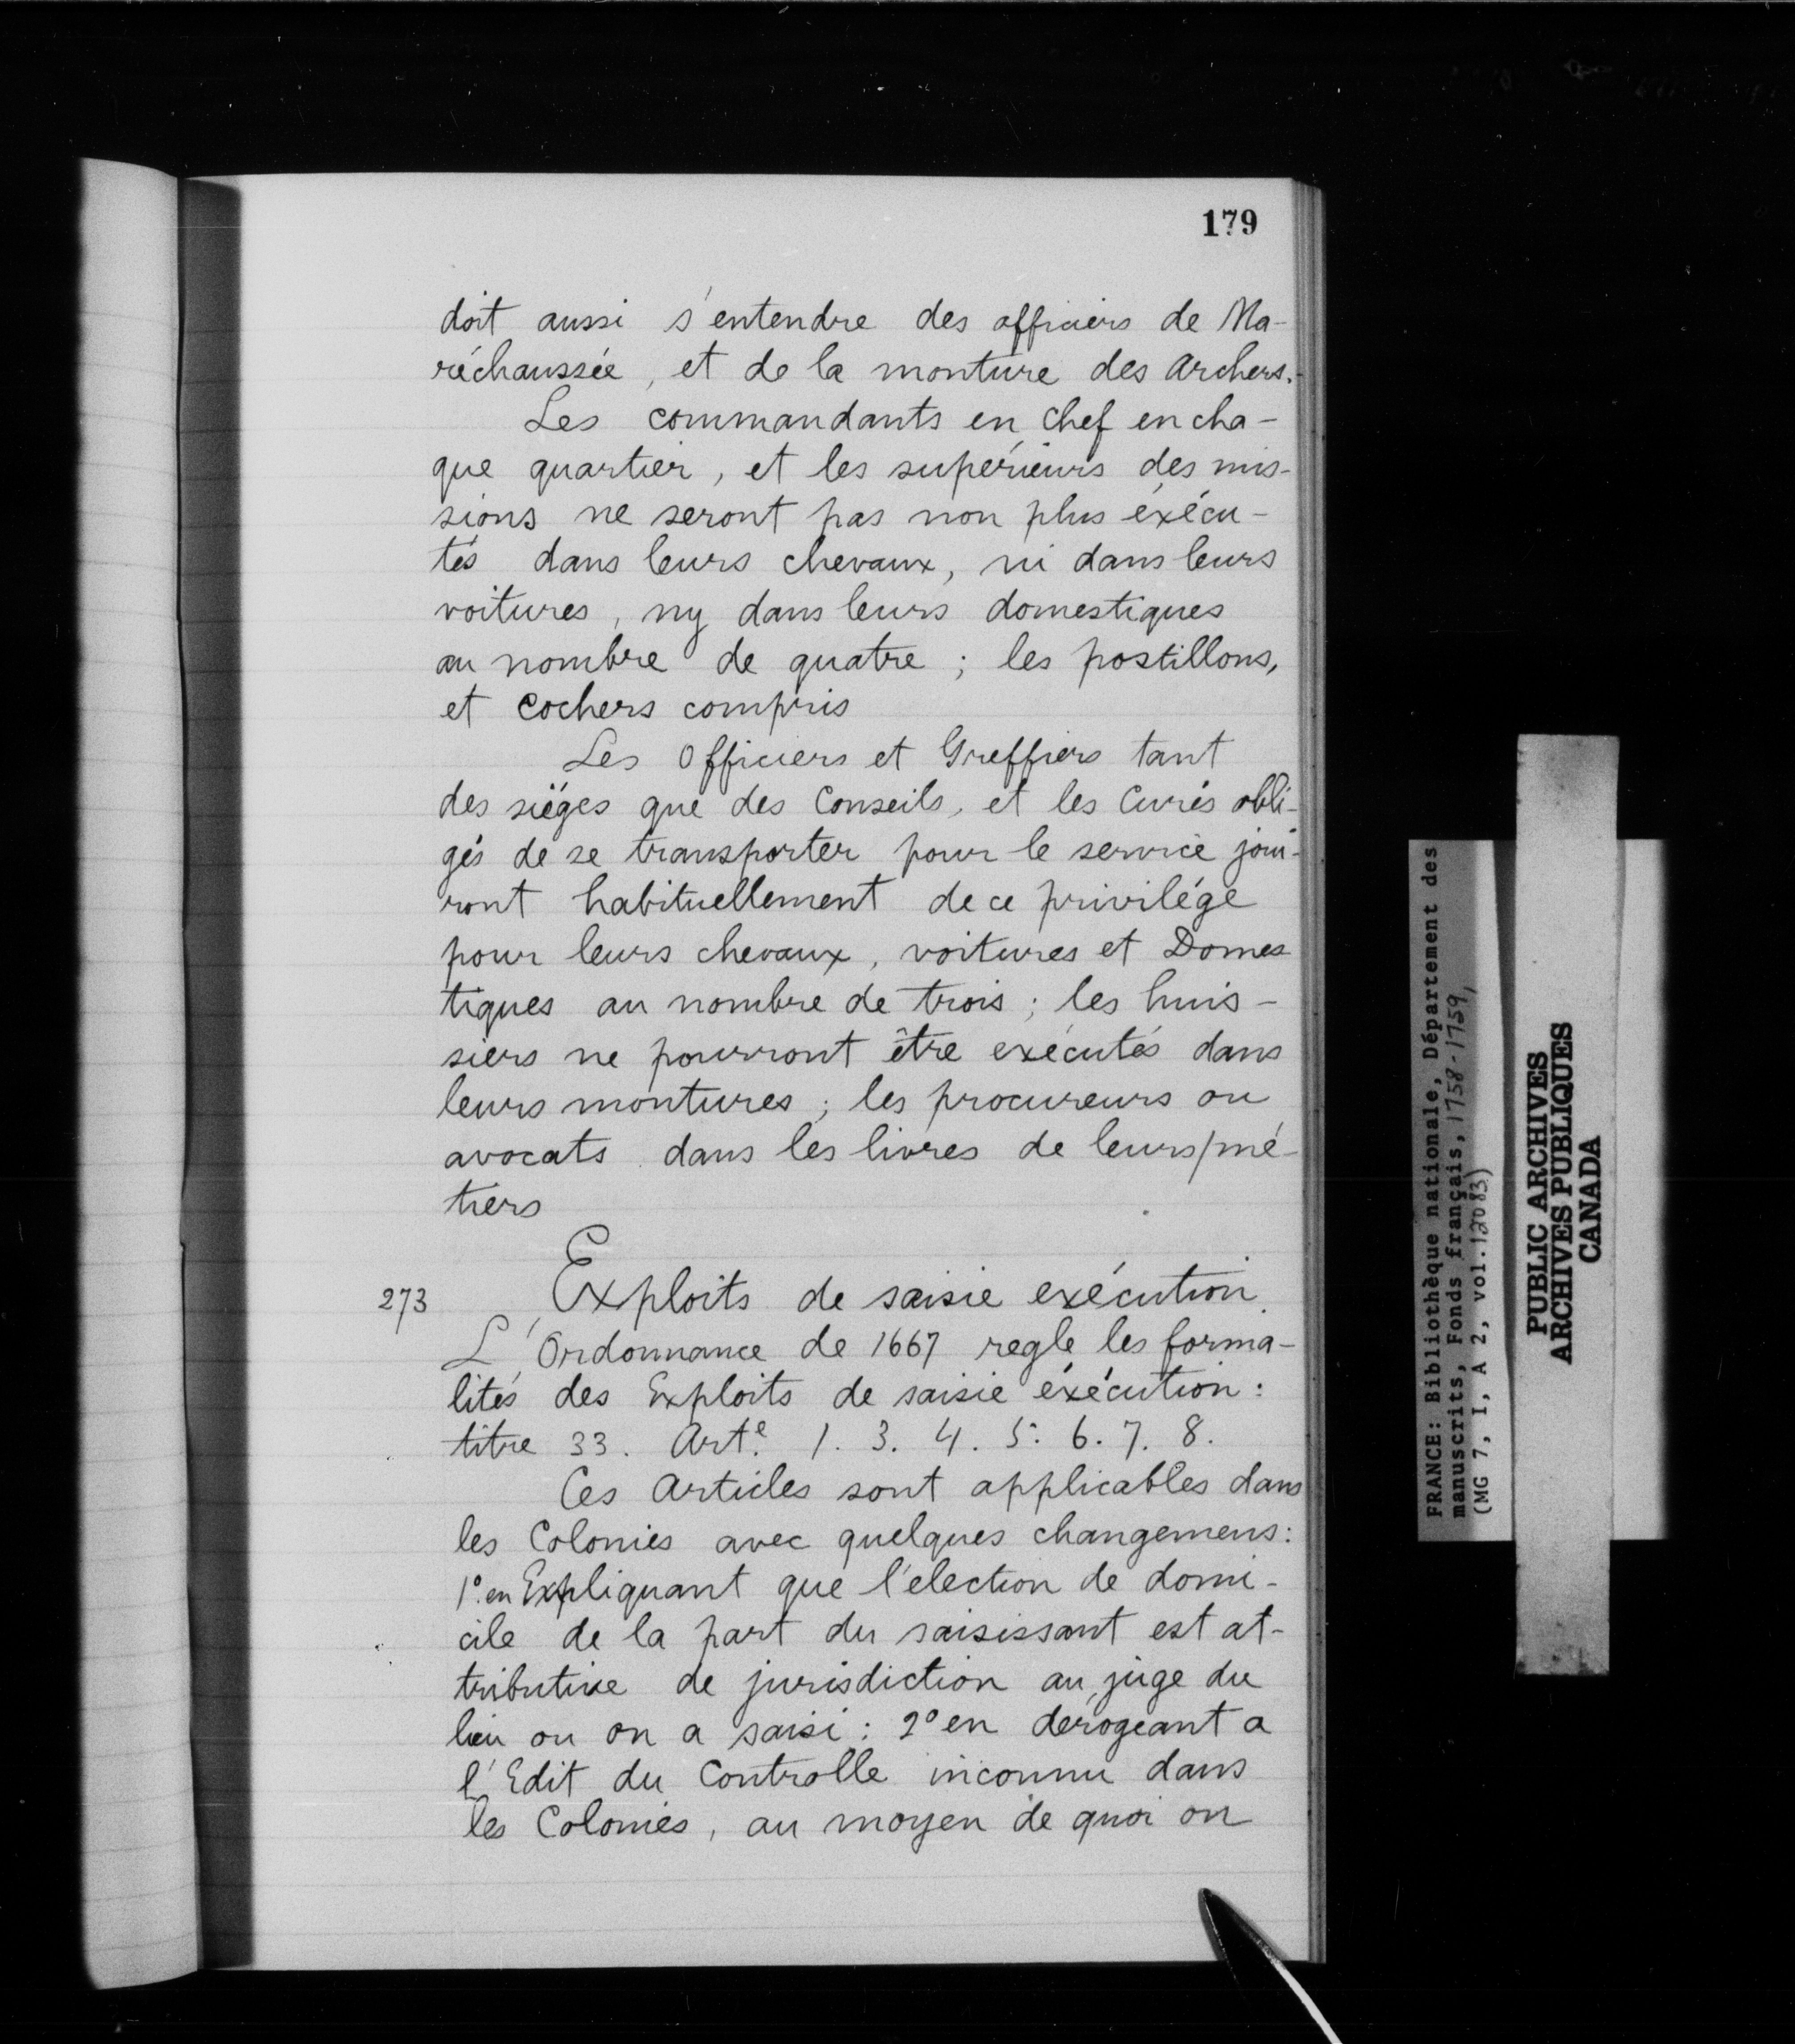 179
doit aussi s'entendre des officiers de Ma-
réchaussée, et de la monture des Archers.-
Les commandants en chef en cha-
que quartier, et les supérieurs des mis-
sions ne seront pas non plus éxécu-
tés dans leurs chevaux, ni dans leurs
voitures, ny dans leurs domestiques
au nombre de quatre ; les postillons,
et Cochers compris
Les Officiers et Greffiers tant
des siéges que des Conseils, et les Curés obli-
gés de se transporter pour le service joui-
ront habituellement de ce privilége
pour leurs chevaux, voitures et Domes
tiques au nombre de trois ; les huis-
siers ne pourront être exécutés dans
leurs montures ; les procureurs ou
avocats dans les livres de leurs/mé-
tiers
273 Exploits de saisie exécution.
L'Ordonnance de 1667 regle les forma-
lités des Exploits de saisie éxécution :
titre 33. Art.e 1. 3. 4. 5. 6. 7. 8.
Ces Articles sont applicables dans
les Colonies avec quelques changemens :
1º. en Expliquant que l'élection de domi-
cile de la part du saisissant est at-
tributive de jurisdiction au juge du
lieu ou on a saisi : 2º en dérogeant a
l'Edit du Controlle inconnu dans
les Colonies, au moyen de quoi on
FRANCE: Bibliothèque nationale, Département des
manuscrits, Fonds français, 1758-1759,
(MG 7, I, A 2, vol. 12083)
PUBLIC ARCHIVES
ARCHIVES PUBLIQUES
CANADA